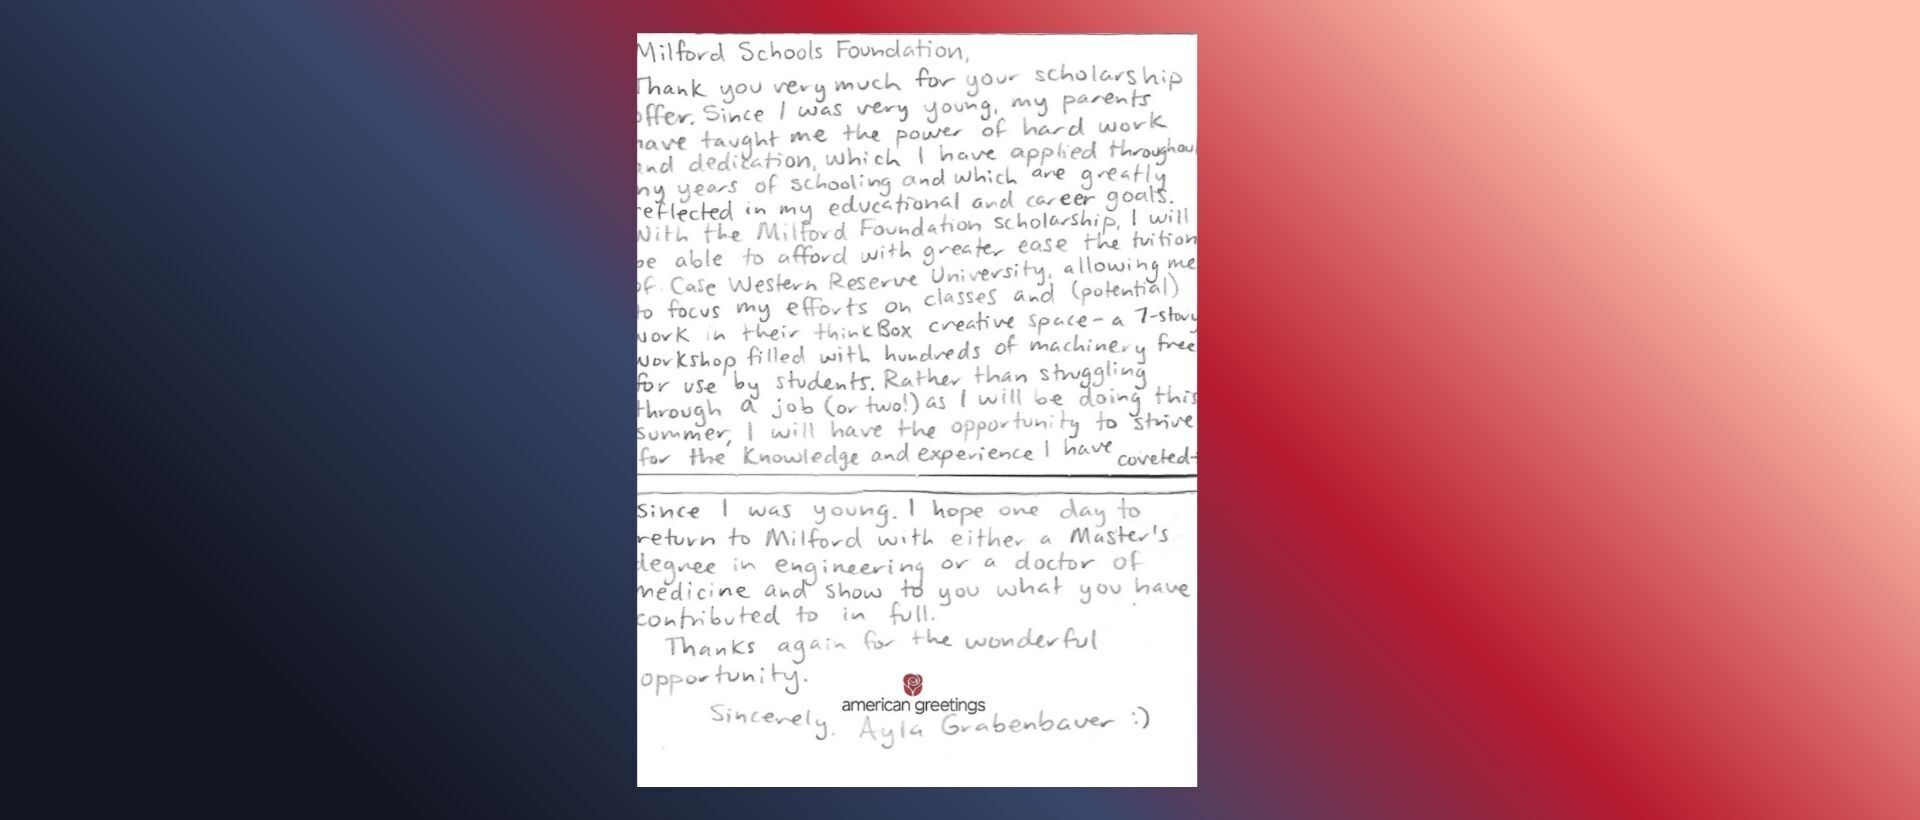 Milford Schools Foundation,
Thank you very much for your scholarship
offer. Since I was very young, my parents
have taught me the power of hard work
and dedication, which I have applied throughou
my years of schooling and which are greatly
reflected in my educational and career goals.
With the Milford Foundation scholarship, I will
be able to afford with greater ease the tuition
of Case Western Reserve University, allowing me
to focus my efforts on classes and (potential)
work in their thinkBox creative space - a 7-story
workshop filled with hundreds of machinery free
for use by students. Rather than struggling
through a job (or two!) as I will be doing this
summer, I will have the opportunity to strive
for the knowledge and experience I have coveted-
since I was young. I hope one day to
return to Milford with either a Master's
degree in engineering or a doctor of
medicine and show to you what you have
contributed to in full.
Thanks again for the wonderful
opportunity.
american greetings
Sincerely, Ayla Grabenbauer :)